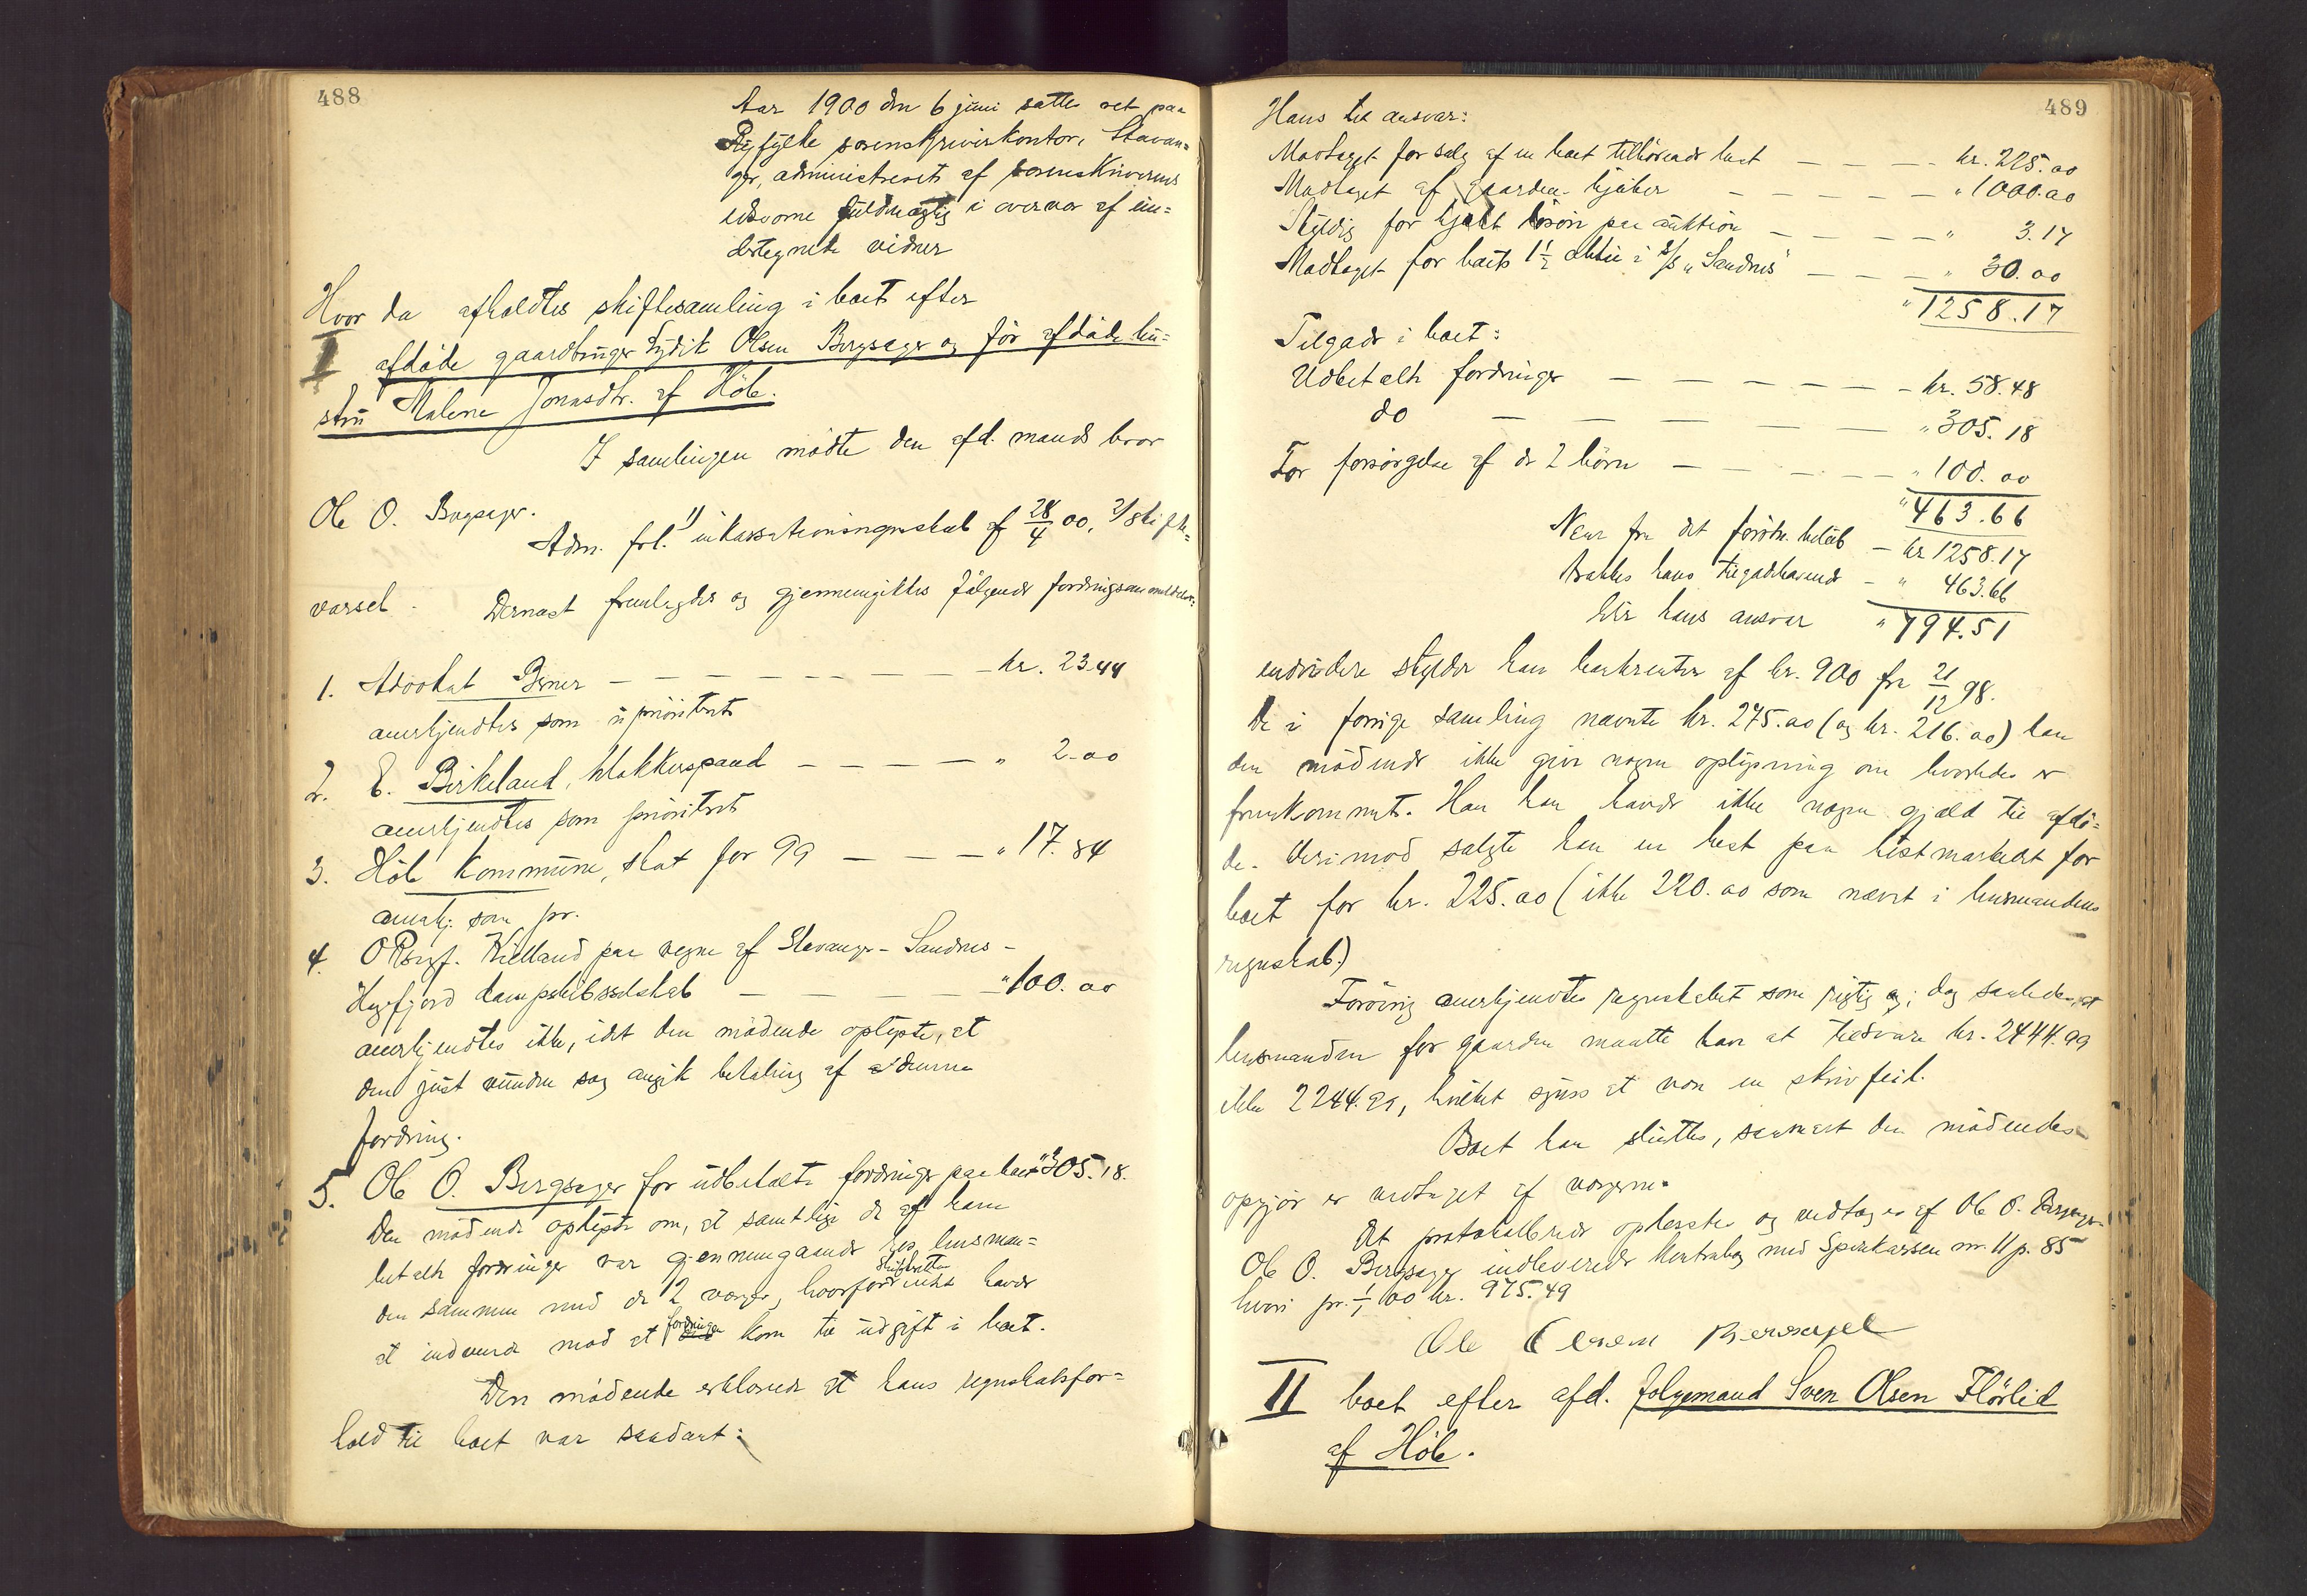 488
Aar 1900 den 6 juni sattes ret paa
Ryfylke sorenskriverkontor, Stavan=
ger, administreret af sorenskriverens
edsvorne fuldmægtig i overvær af un=
dertegnede vidner
Hvor da afholdtes skiftesamling i boet efter
I afdøde gaardbruger Sydik Olsen Bergsager og før afdøde hu=
stru Malene Jonasdtr. af Høle.
I samlingen mødte den afd. mands bror
Ole O. Bergsager.
Adm. frl. 1/ inkassationsregnskab af 28/4 00, 2/ skifte-
varsel.
Dernæst fremlagdes og gjennemgikkes følgende fordringsanmeldelser:
1. Advokat Berner — — — — — — — — kr. 23.44
anerkjendtes som uprioritert
2. E. Birkeland, klokkerspand — — — — — " 2.00
anerkjendtes som prioritert
3. Høle kommune, skat for 99 — — — — " 17.84
anerkj. som pr.
4. ORsagf. Kielland paa vegne af Stavanger-Sandnes-
Høgsfjord dampskibsselskab — — — — — " 100.00
anerkjendtes ikke, idet den mødende oplyste, at
den just vundne sag angik betaling af denne
fordring.
5. Ole O. Bergsager for udbetalte fordringer paa boet " 305.18.
Den mødende oplyste om, at samtlige de af ham
betalte fordringer var gjennemgaaede hos lensman=
den sammen med de 2 værger, hvorfor skifteretten intet havde
at indvende mod at fordringen kom til udgift i boet.
Den mødende erklærede at hans regnskabsfor=
hold til boet var saadant:
489
Hans til ansvar:
Modtaget for salg af en boet tilhørende hest — — — kr. 225.00
Modtaget af gaardens kjøber — — — — — " 1000.00
Skyldig for kjøbt løsøre paa auktion — — — — " 3.17
Modtaget for boets 1½ aktie i D/S "Sandnes" — — — " 30.00
" 1258.17
Tilgode i boet:
Udbetalte fordringer — — — — — — — kr. 58.48
do — — — — — — — " 305.18
For forsørgelse af de 2 børn — — — — — " 100.00
" 463.66
Naar fra det førstn. beløb — kr 1258.17
trækkes hans tilgodehavende — " 463.66
blir hans ansvar " 794.51
endvidere skylder han bankrenter af kr. 900 fra 21/12 98.
De i forrige samling nævnte kr. 275.00 (og kr. 216.00) kan
den mødende ikke give nogen oplysning om hvorledes er
fremkommet. Han har havde ikke nogen gjæld til afdø=
de. Derimod solgte han en hest paa hestmarkedet for
boet for kr. 225.00 (ikke 220.00 som nævnt i lensmandens
regnskab.)
Forøvrig anerkjendtes regnskabet som rigtig; dog saaledes, at
lensmanden for gaarden maatte have at tilsvare kr. 2444.99
ikke 2244.99, hvilket synes at være en skrivfeil.
Boet kan sluttes, saasnart den mødendes
opgjør er vedtaget af værgerne.
Det protokollerede oplæstes og vedtoges af Ole O. Bergsager.
Ole O. Bergsager indleverede kontrabog med Sparekassen nr. 11 p. 85
hvori pr. 1/1 00 kr. 975.49
Ole Olsen Bersagel
II boet efter afd. følgemand Sven Olsen Flørlid
af Høle.